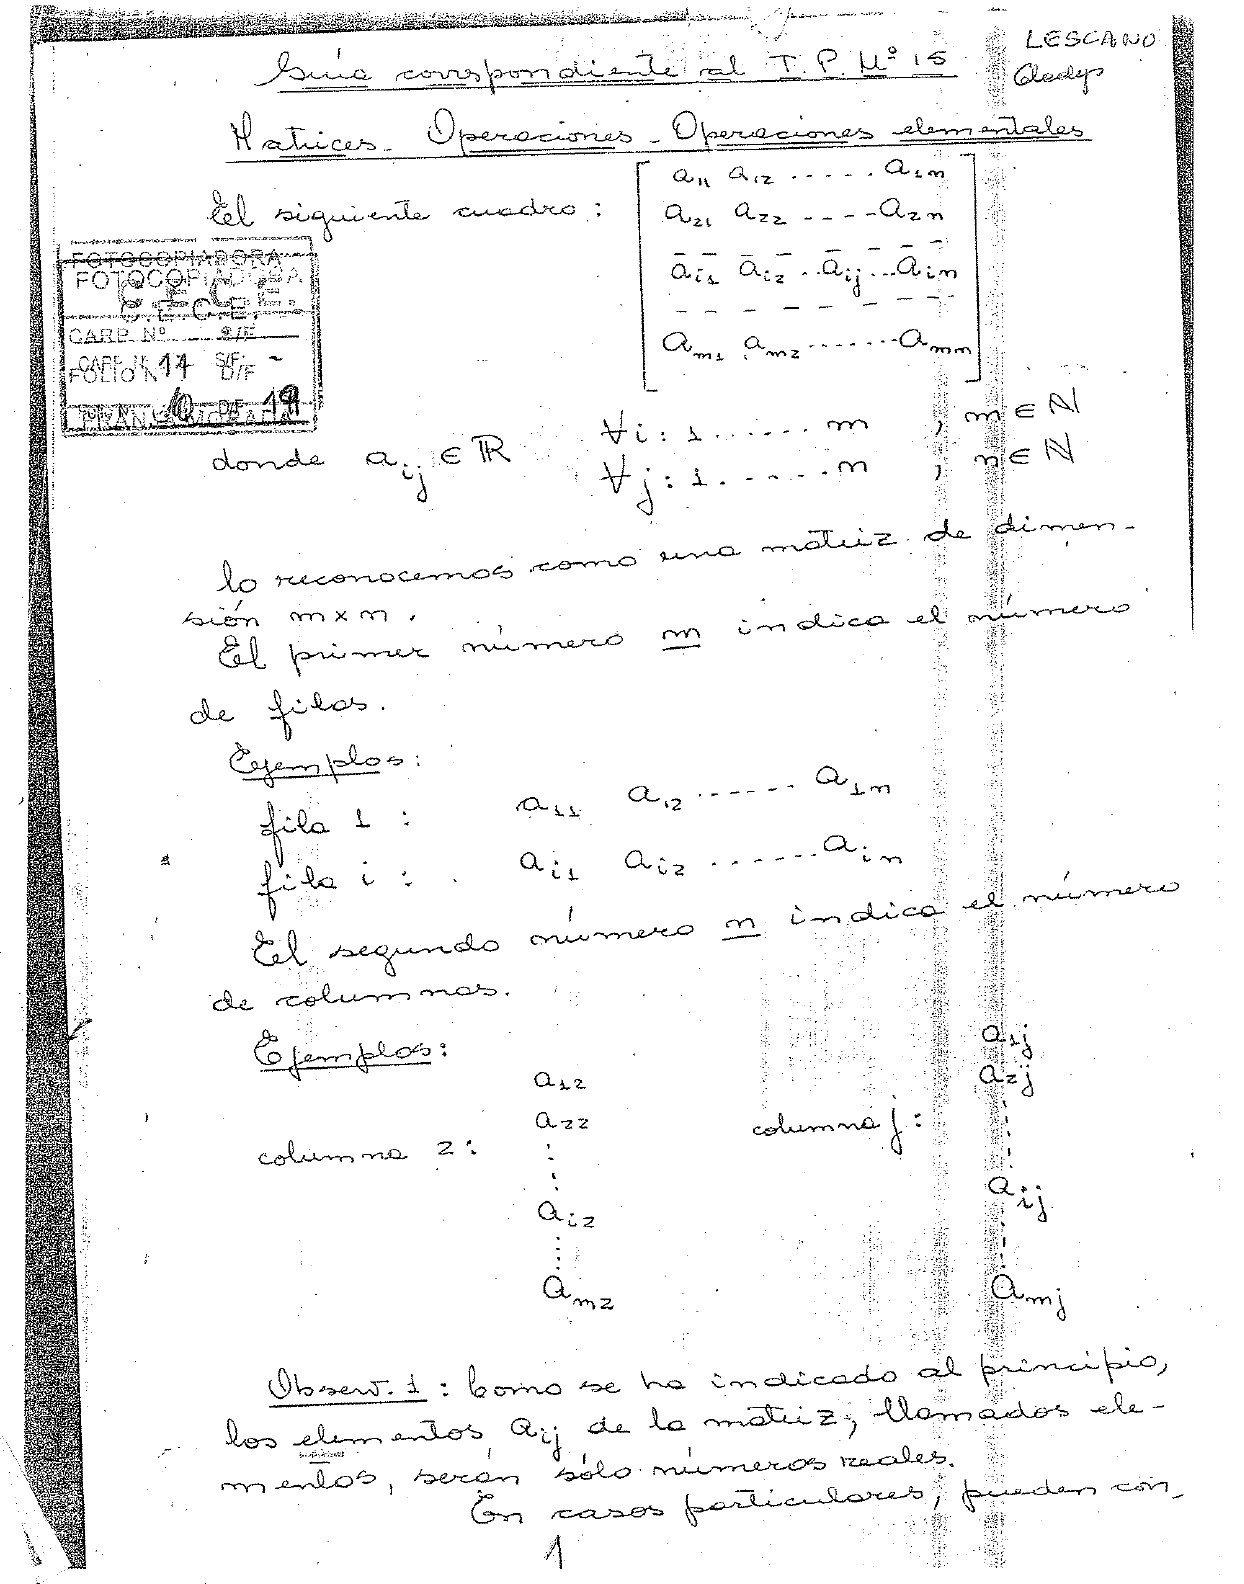 LESCANO
Gladys
Guía correspondiente al T.P. Nº 15
Matrices - Operaciones - Operaciones elementales
El siguiente cuadro:
a11 a12 ...... a1n
a21 a22 ----a2n
ai1 ai2 ..aij...ain
am1 am2 ........amn
FOTOCOPIADORA
FOTOCOPIADORA
C.E.C.E.
CARP. Nº S/F
FOLIO D/F
donde aij ∈ ℝ ∀i: 1......m , m ∈ ℕ
∀j: 1......n , n ∈ ℕ
lo reconocemos como una matriz de dimen-
sión m x n.
El primer número m indica el número
de filas.
Ejemplos:
fila 1 : a11 a12 ...... a1n
fila i : ai1 ai2 ...... ain
El segundo número n indica el número
de columnas.
Ejemplos:
columna 2:
a12
a22
⋮
ai2
⋮
am2
columna j:
a1j
a2j
⋮
aij
⋮
amj
Observ. 1 : Como se ha indicado al principio,
los elementos aij de la matriz, llamados ele-
mentos, serán sólo números reales.
En casos particulares, pueden con-
1